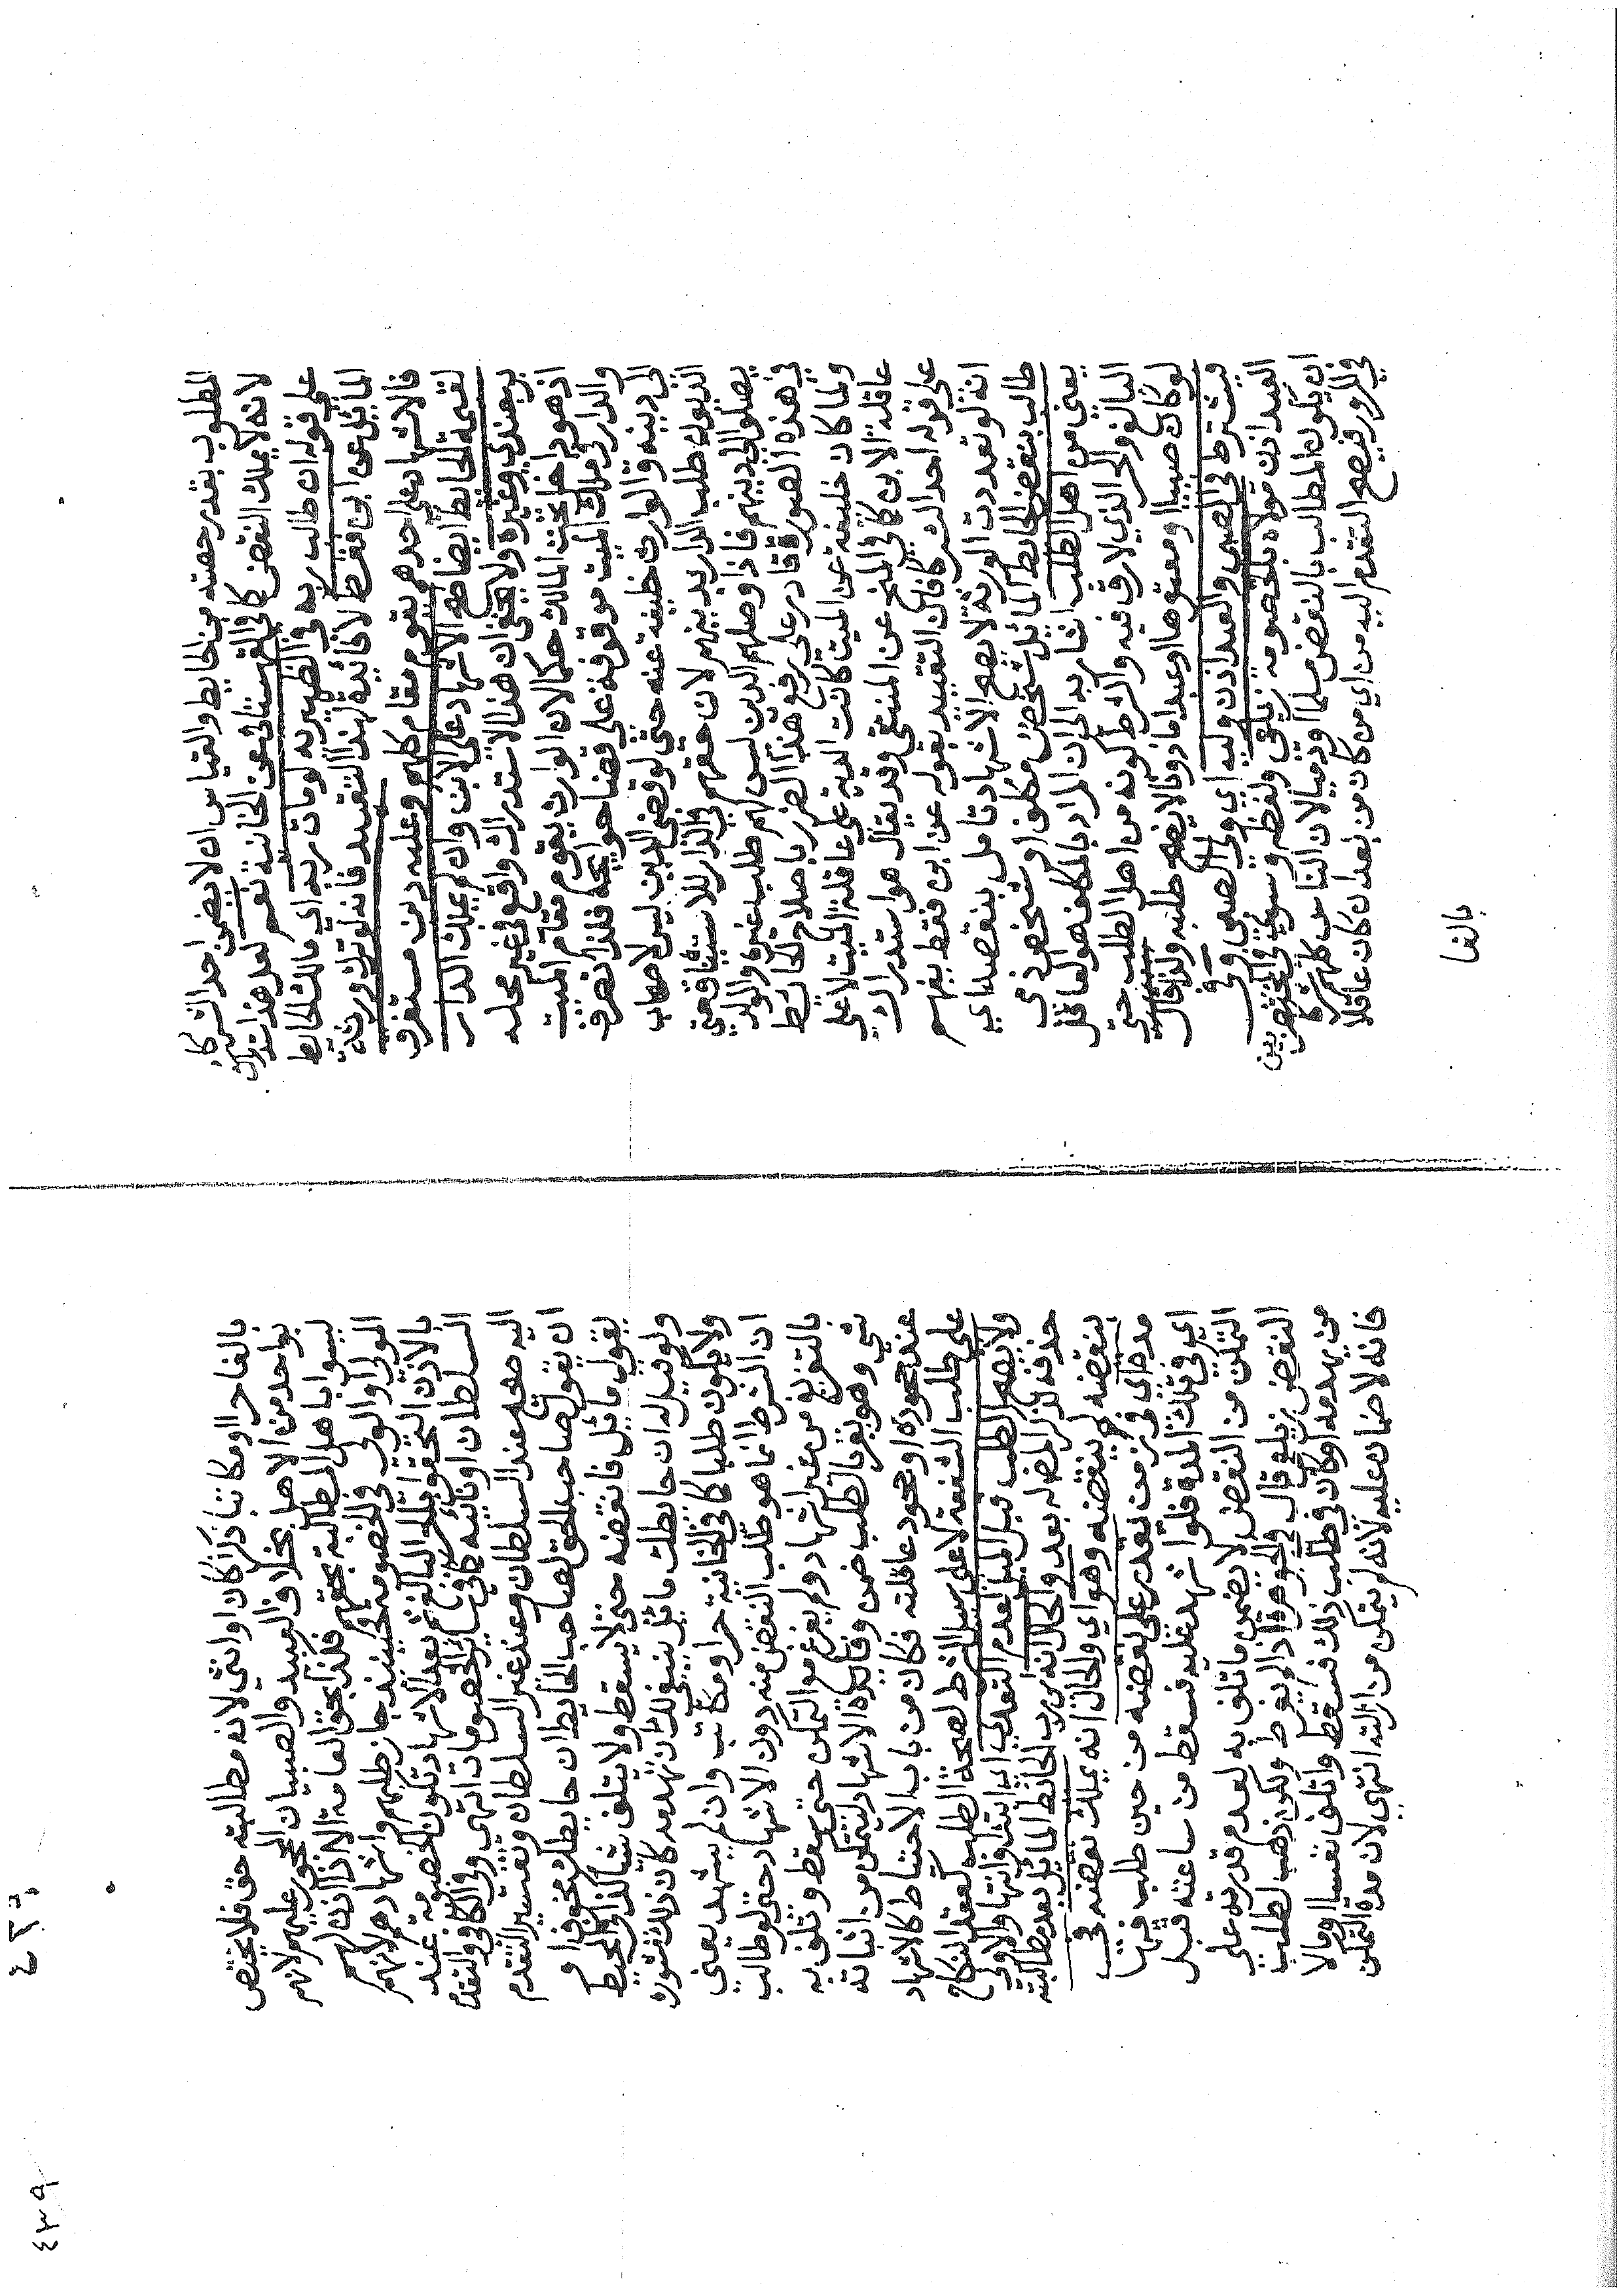 المطلوب بقدر حصته من الحايط والقياس ان لا يضمن احد الشركاء
لانه لا يملك النقض كما في القهستاني عن الخانية نعم بعد هذا استدراك
علي قوله ان طالب ربه وفي الظهيرية لو مات ربه اي مالك الحايط
المائل عن ابن فقط لا فائدة لهذا التقييد فانه لو ترك ورثة
فالاشهاد علي احدهم يقوم مقام كلهم وعليه دين مستغرق
لقيمة الحايط ايضا صح الاشهاد علي الابن وان لم يملك الدار
برجندي وغيره ولا يخفي ان هذا الاستدراك واقع في غير محله
اذ هو داخل تحت المالك حكما لان الوارث يقوم مقام الميت
والدار في ملك الميت موقوفة علي قضا حوايجه فلذا انصرف
الي دينه والوارث خليفة عنه حتي لو قضي الدين ليس لاصحاب
الديون طلب الدار بل ينهر لان حقهم في الدار للاستيثاق حتي
يصلوا الي دينهم فاذا وصلهم الدين ليس لهم طلب غيره والولد
في هذه الصورة قادر علي رفع هذا الضرر باصلاح الحايط
ولما كان خليفة عن الميت كانت الدية علي عاقلة الميت لا علي
عاقلة الابن كما في المنح عن المنتقي وقد يقال هو استدراك
علي قوله احد الشركا فان التقييد بقوله عن ابن فقط يفهم
انه لو تعددت الورثة لا يصح الاشهاد تامل بنقضه اي
طالب بنقض الحايط المائل شخص مكلف او شخص ذمي
يعني من اهل الطلب اشار به الي ان المراد بالمكلف هو العاقل
البالغ والحر الذي لا رق فيه والشرط كونه من اهل الطلب حتي
لو كان صبيا او معتوها او عبدا ماذونا لا يصح طلبه ولذا قال
فيشترط في الصبي والعبد اذن وليه اي ولي الصبي وفي
العبد اذن مولاه بالخصومة زيلعي ولفظه وسوي في المختصر بين
ان يكون المطالب بالنقض مسلما او ذميا لان الناس كلهم شركا
في المرور فيصح التقدم اليه من اي من كان من بعد ان كان عاقلا
بالغا
بالغا حرا او مكاتبا ذكرا كان او انثي لانه مطالبته حق فلا يختص
بواحد من الاهل بخلاف العبيد والصبيان المحجور عليهم لانهم
ليسوا باهل المطالبة بحقهم فكذا بحق العامة الا اذا اذن لهم
المولي او الولي في الخصومة فحينئذ جاز طلبهم واشهادهم لانهم
بالاذن التحقوا بالحر البالغ ثم بعد الاشهاد تكون الخصومة عند
السلطان او نائبه كما في سائر الخصومات انتهي وفي الكافي والتقدم
اليه صحيح عند السلطان وعند غير السلطان وتفسير التقدم
ان يقول صاحب الحق لصاحب الحايط ان حايطك مخوف او
يقول مائل فانقضه حتي لا يسقط ولا يتلف شيا كذا في المحيط
ولو قيل له ان حايطك مائل ينبغي لك ان تهدمه كان ذلك مشورة
ولا يكون طلبا كما في الخانية حر او مكاتب وان لم يشهد يعني
ان الشرط انما هو طلب النقض منه دون الاشهاد حتي لو طالب
بالتفريغ من غير اشهاد ولم يفرغ مع التمكن حتي سقط وتلف به
شي وهو يقر بالطلب ضمن وفائدة الاشهاد ليتمكن من اثباته
عند جحوده او جحود عاقلته فكان من باب الاحتياط كالاشهاد
علي طلب الشفعة لا علي سبيل الشرط لصحة الطلب كعقد النكاح
ولا يصح الطلب قبل الميل لعدم التعدي اي ابتداء وانتها والاولي
حذفه لذكر المص له بعد والحال انه لم يرب الحايط المائل بعد مطالبته
بنقضه لم ينقضه وهو اي والحال انه يملك نقضه في
مدة اي في زمن تقدر علي نقضه من حين طلب فيها
اي في تلك المدة فلو اشهد عليه فسقط من ساعته قبل
التمكن من النقض لا يضمن ما تلف به لعدم قدرته علي
النقض زيلعي قال في الجوهرة اذا لم يفرط ولكن ذهب لطلب
من يهدمه وكان في طلب ذلك فسقط واتلف نفسا او مالا
فانه لا ضمان عليه لانه لم يتمكن من ازالته انتهي لان مدة التمكن
٤٣٩